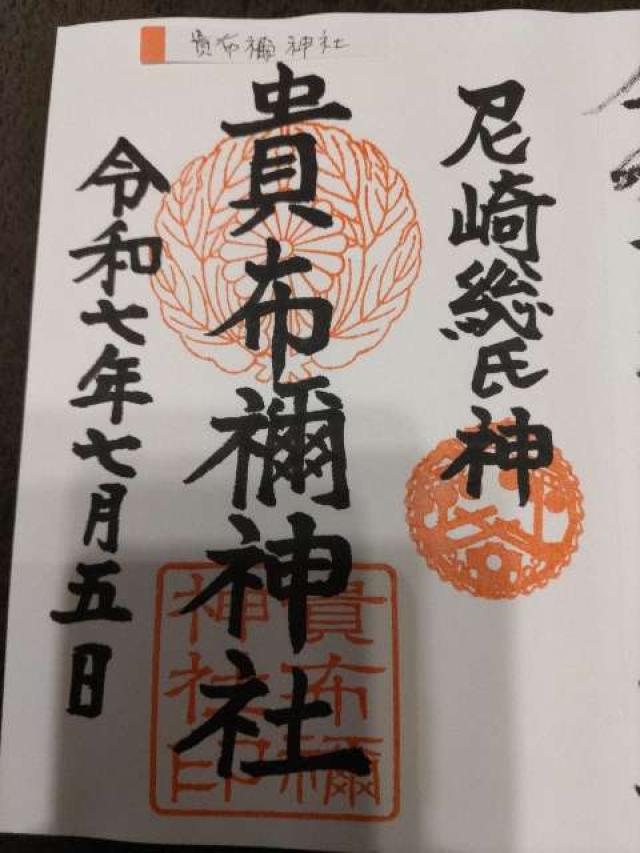 貴布禰神社
尼崎総氏神
貴布禰神社
令和七年七月五日
貴布禰
神社印